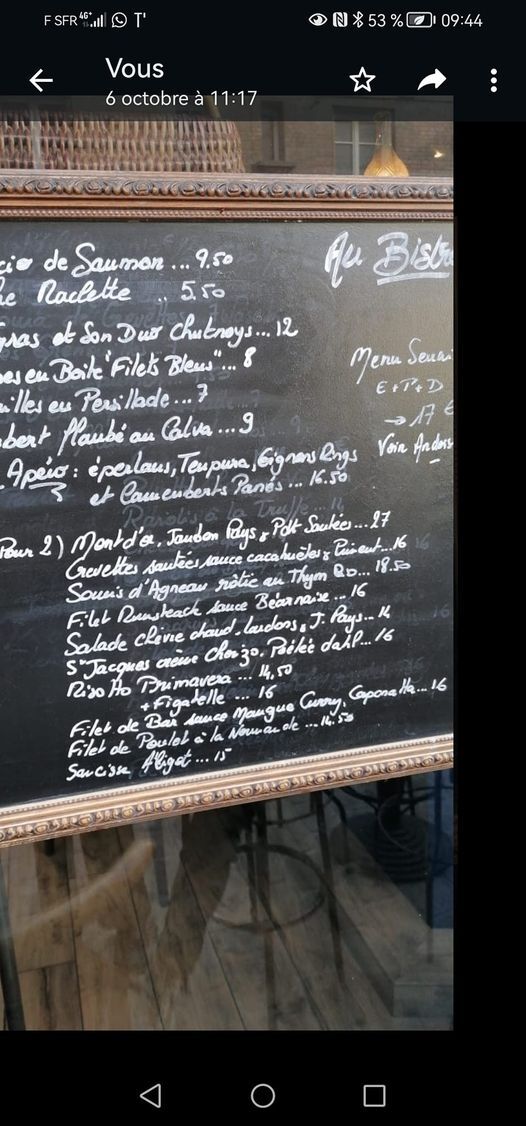 F SFR 4G+ T' 53 % 09:44
Vous
6 octobre à 11:17
cio de Saumon ... 9.50
Raclette .. 5.50
Au Bistr
gras et Son Duo Chutneys ... 12
es en Boite "Filets Bleus" ... 8
Menu Semai
E + P + D
→ 17 €
illes en Persillade ... 7
bert flambé au Calva ... 9
Voir Ardois
Apéro : éperlans, Tempura, Oignons Rings
et Camemberts Panés ... 16.50
Pour 2) Mont d'or, Jambon Pays, Pdt Sautées ... 27
Crevettes sautées sauce cacahuètes & Piment ... 16
Souris d'Agneau rôtie au Thym ... 18.50
Filet Rumsteack sauce Béarnaise ... 16
Salade Chèvre chaud, lardons, J. Pays ... 14
St Jacques crème Chorizo, Poêlée ... 16
Risotto Primavera ... 14,50
+ Figatelle ... 16
Filet de Bar sauce Mangue Curry, Caponatta ... 16
Filet de Poulet à la Normande ... 14.50
Saucisse Aligot ... 15